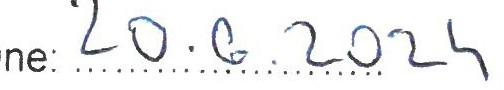 ne: 20.6.2024